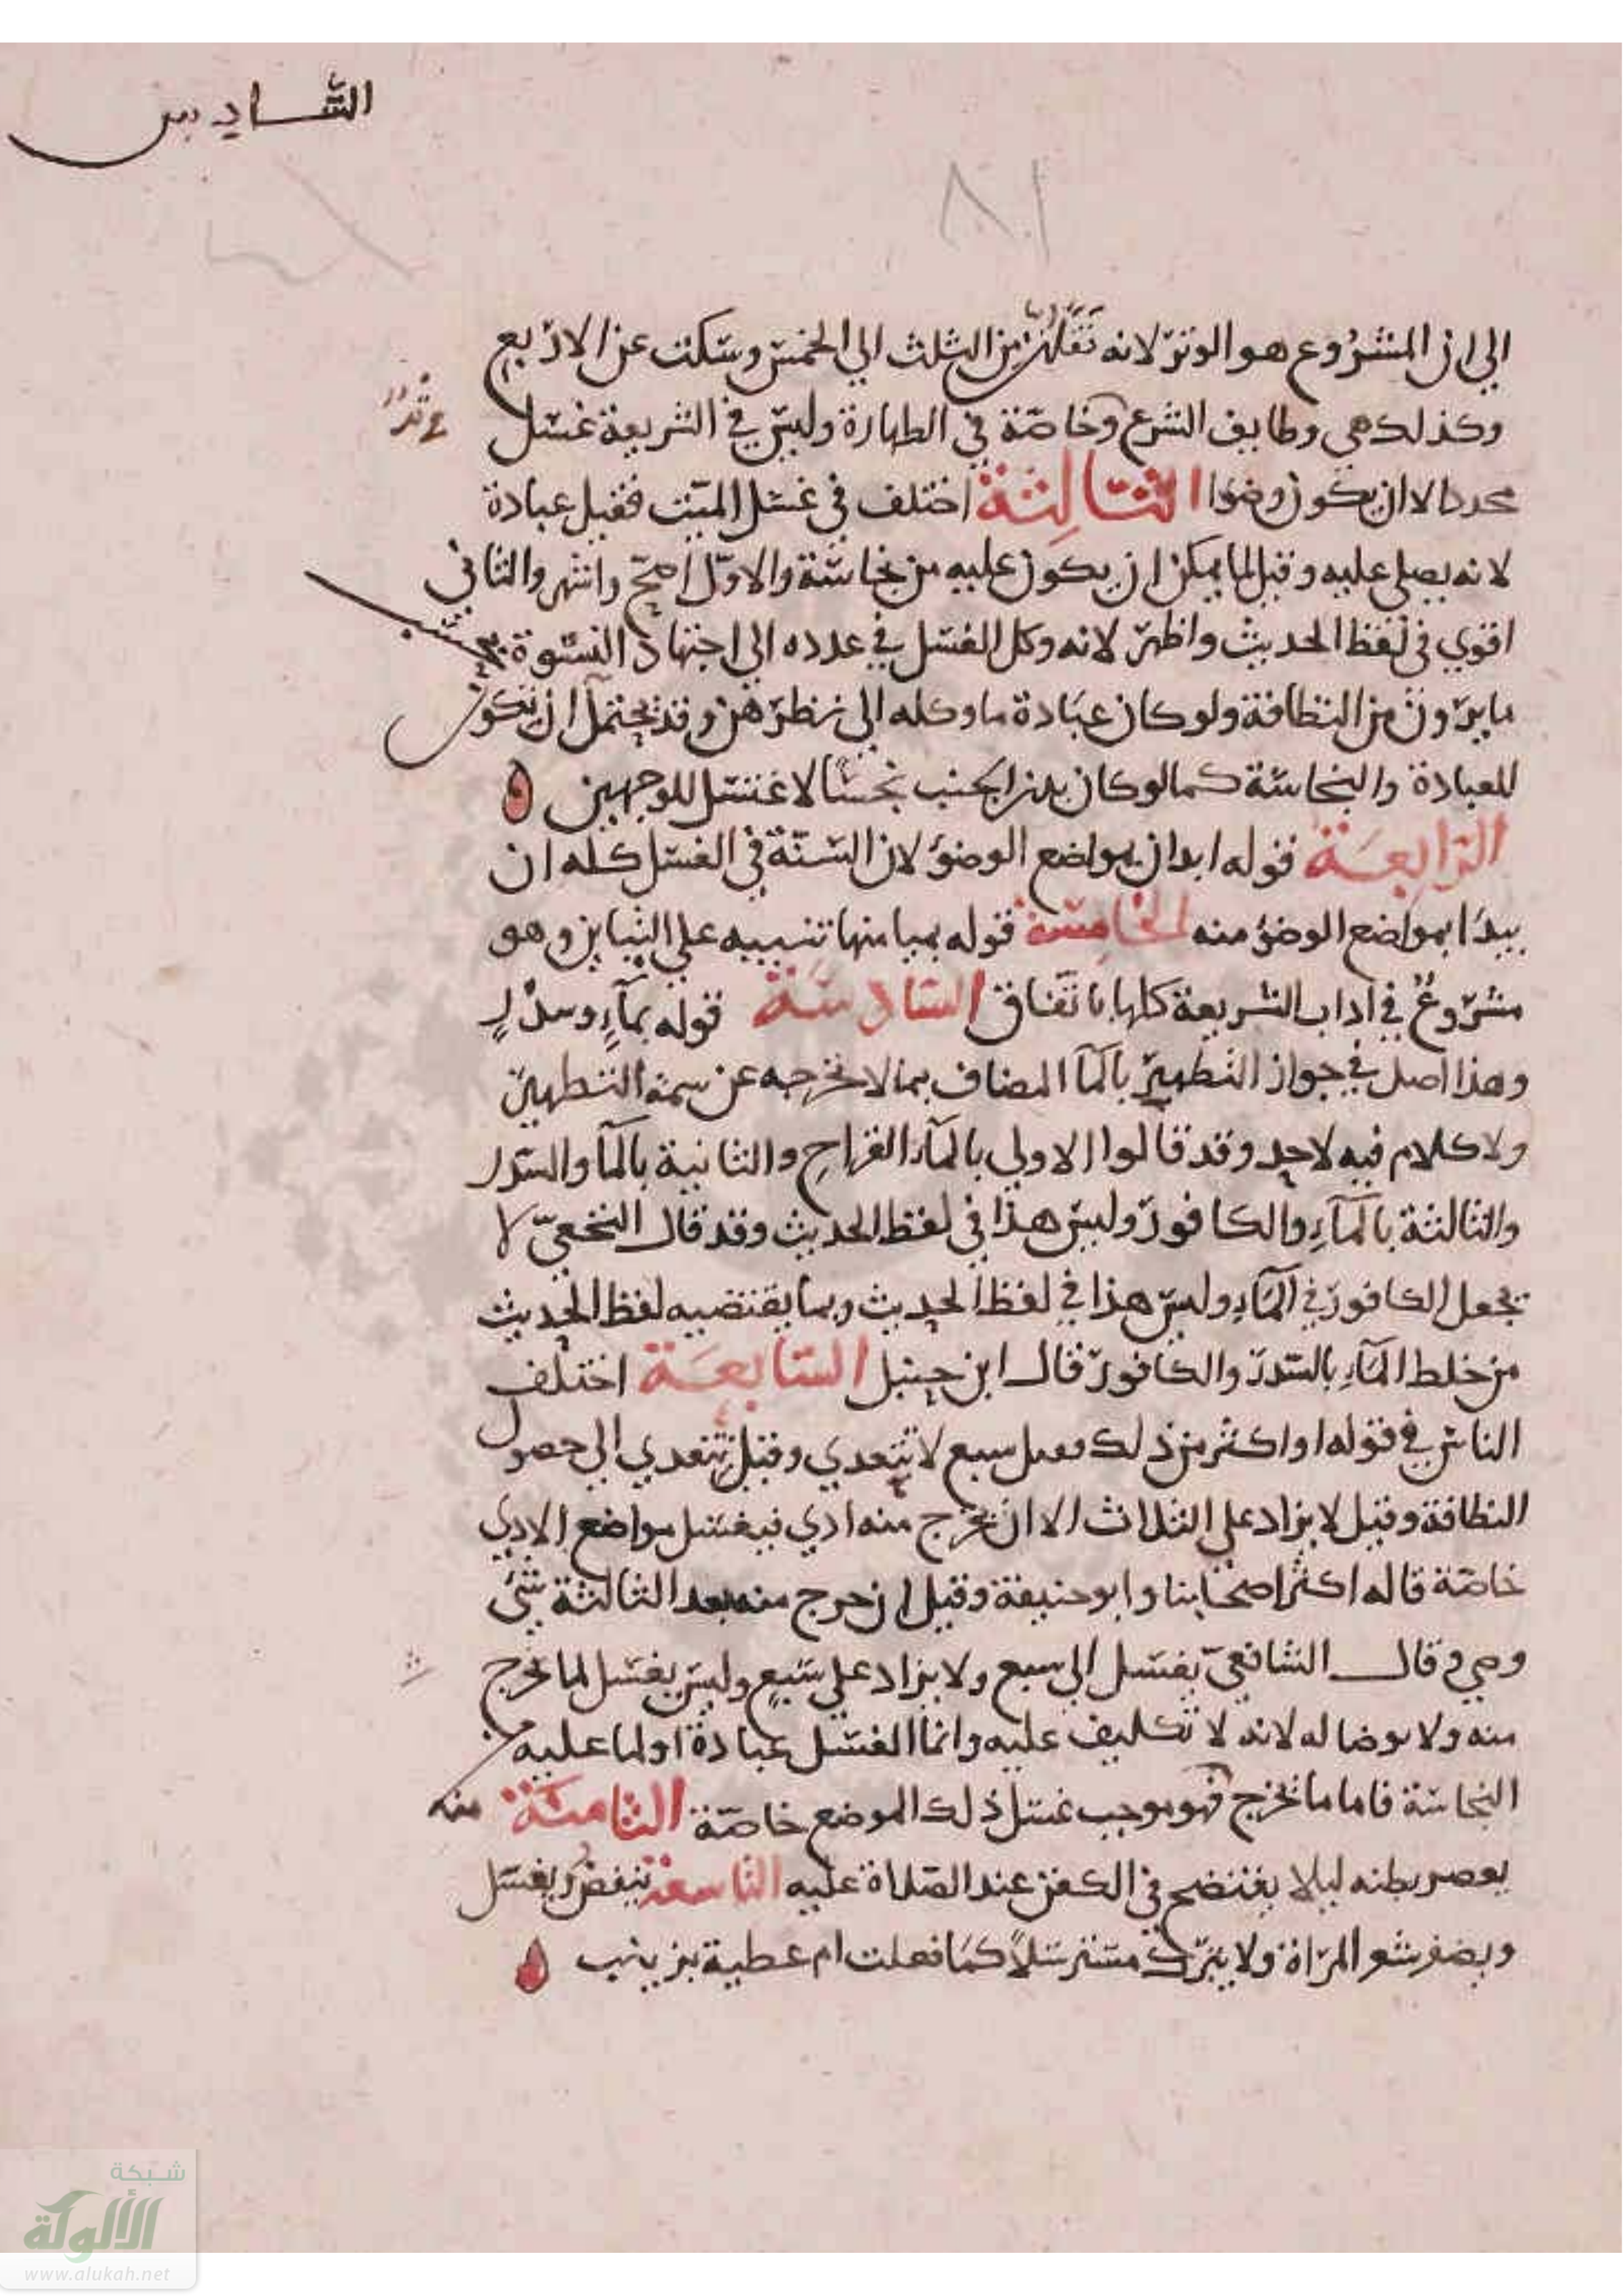 السادس
٨١
الي ان المشروع هو الوتر لانه نقلهن من الثلث الي الخمس وسكت عن الاربع
وكذلك هي وظايف الشرع وخاصة في الطهارة وليس في الشريعة غسل
محددا الا ان يكون وضوا الثالثة اختلف في غسل الميت فقيل عبادة
لانه يصلي عليه وقيل لما يمكن ان يكون عليه من نجاسة والاول اصح واشهر والثاني
اقوي في لفظ الحديث واظهر لانه وكل الغسل في عدده الي اجتهاد النسوة بحسب
ما يرون من النظافة ولو كان عبادة ما وكله الي نظرهن وقد يحتمل ان يكون
للعبادة والنجاسة كما لو كان بدن الجنب نجسا لاغتسل للوجهين
الرابعة قوله ابدان بمواضع الوضؤ لان السنة في الغسل كله ان
يبدا بمواضع الوضؤ منه الخامسة قوله بميامنها تنبيه علي التيامن وهو
مشروع في اداب الشريعة كلها باتفاق السادسة قوله بماء وسدر
وهذا اصل في جواز التطهير بالمآ المضاف بما لا يخرجه عن سمة التطهير
ولا كلام فيه لاحد وقد قالوا الاولي بالمآء القراح والثانية بالمآ والسدر
والثالثة بالمآء والكافور وليس هذا في لفظ الحديث وقد قال النخعي لا
يجعل الكافور في المآء وليس هذا في لفظ الحديث وبما يقتضيه لفظ الحديث
من خلط المآء بالسدر والكافور قال ابن حنبل السابعة اختلف
الناس في قوله او اكثر من ذلك فقيل سبع لا تتعدي وقيل تتعدي الي حصول
النظافة وقيل لا يزاد علي الثلاث الا ان يخرج منه اذي فيغسل مواضع الاذي
خاصة قاله اكثر اصحابنا وابو حنيفة وقيل ان خرج منه بعد الثالثة شئ
وضي وقال الشافعي يغسل الي سبع ولا يزاد علي سبع وليس يغسل لما يخرج
منه ولا يوضا له لانه لا تكليف عليه وانما الغسل عبادة او لما عليه من
النجاسة فاما ما يخرج منه فهو موجب غسل ذلك الموضع خاصة الثامنة
يعصر بطنه ليلا يفتضح في الكفن عند الصلاة عليه التاسعة ينفض ويغسل
ويضفر شعر المراة ولا يترك مسترسلا كما فعلت ام عطية بزينب
شبكة
الألوكة
www.alukah.net